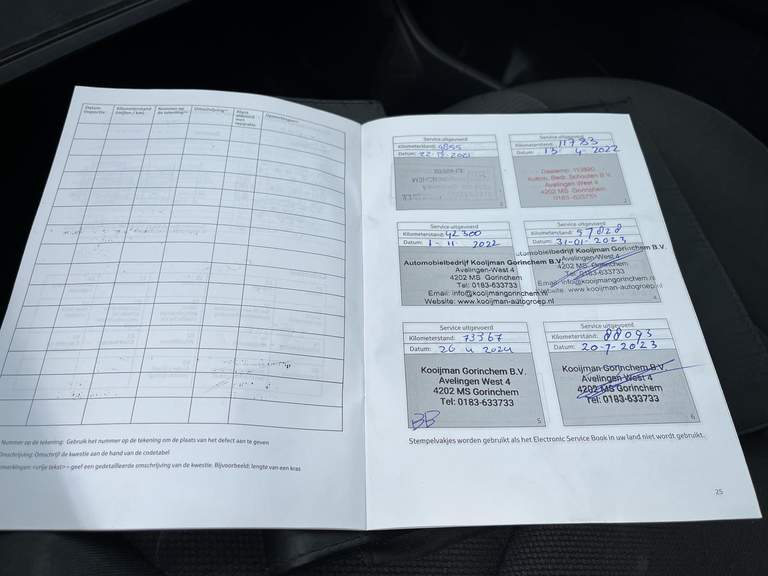 Datum
inspectie
Kilometerstand
(mijlen / km)
Nummer op
de tekening
Omschrijving
Opmerkingen
Nummer op de tekening: Gebruik het nummer op de tekening om de plaats van het defect aan te geven
Omschrijving: Omschrijf de kwestie aan de hand van de codetabel
<vrije tekst> – geef een gedetailleerde omschrijving van de kwestie. Bijvoorbeeld: lengte van een kras
Service uitgevoerd
Kilometerstand:
Datum:
Service uitgevoerd
Kilometerstand: 11783
Datum: 13-4-2022
Schouten B.V.
Avelingen West 4
4202 MS Gorinchem
0183-633733
Service uitgevoerd
Kilometerstand: 42300
Datum: 1-11-2022
Automobielbedrijf Kooijman Gorinchem B.V.
Avelingen-West 4
4202 MS Gorinchem
Tel: 0183-633733
Email: info@kooijmangorinchem.nl
Website: www.kooijman-autogroep.nl
Service uitgevoerd
Kilometerstand: 57828
Datum: 31-01-2023
Automobielbedrijf Kooijman Gorinchem B.V.
Avelingen-West 4
4202 MS Gorinchem
Tel: 0183-633733
Email: info@kooijmangorinchem.nl
Website: www.kooijman-autogroep.nl
4
Service uitgevoerd
Kilometerstand: 73367
Datum: 26 4 2024
Kooijman Gorinchem B.V.
Avelingen West 4
4202 MS Gorinchem
Tel: 0183-633733
BB
5
Service uitgevoerd
Kilometerstand: 88093
Datum: 20-7-2023
Kooijman Gorinchem B.V.
Avelingen West 4
4202 MS Gorinchem
Tel: 0183-633733
6
Stempelvakjes worden gebruikt als het Electronic Service Book in uw land niet wordt gebruikt.
25